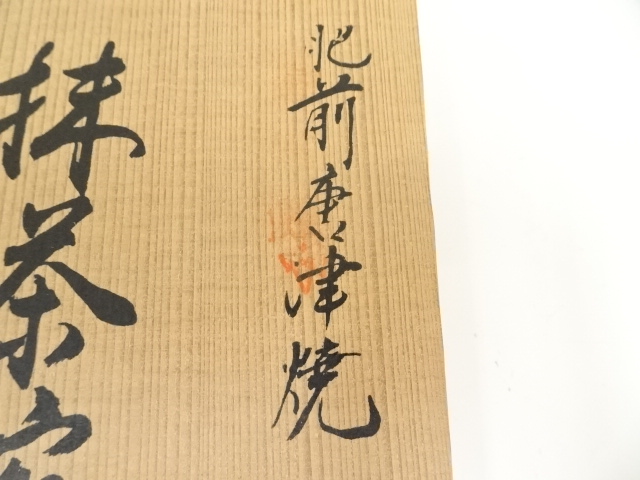 肥前唐津焼
抹茶